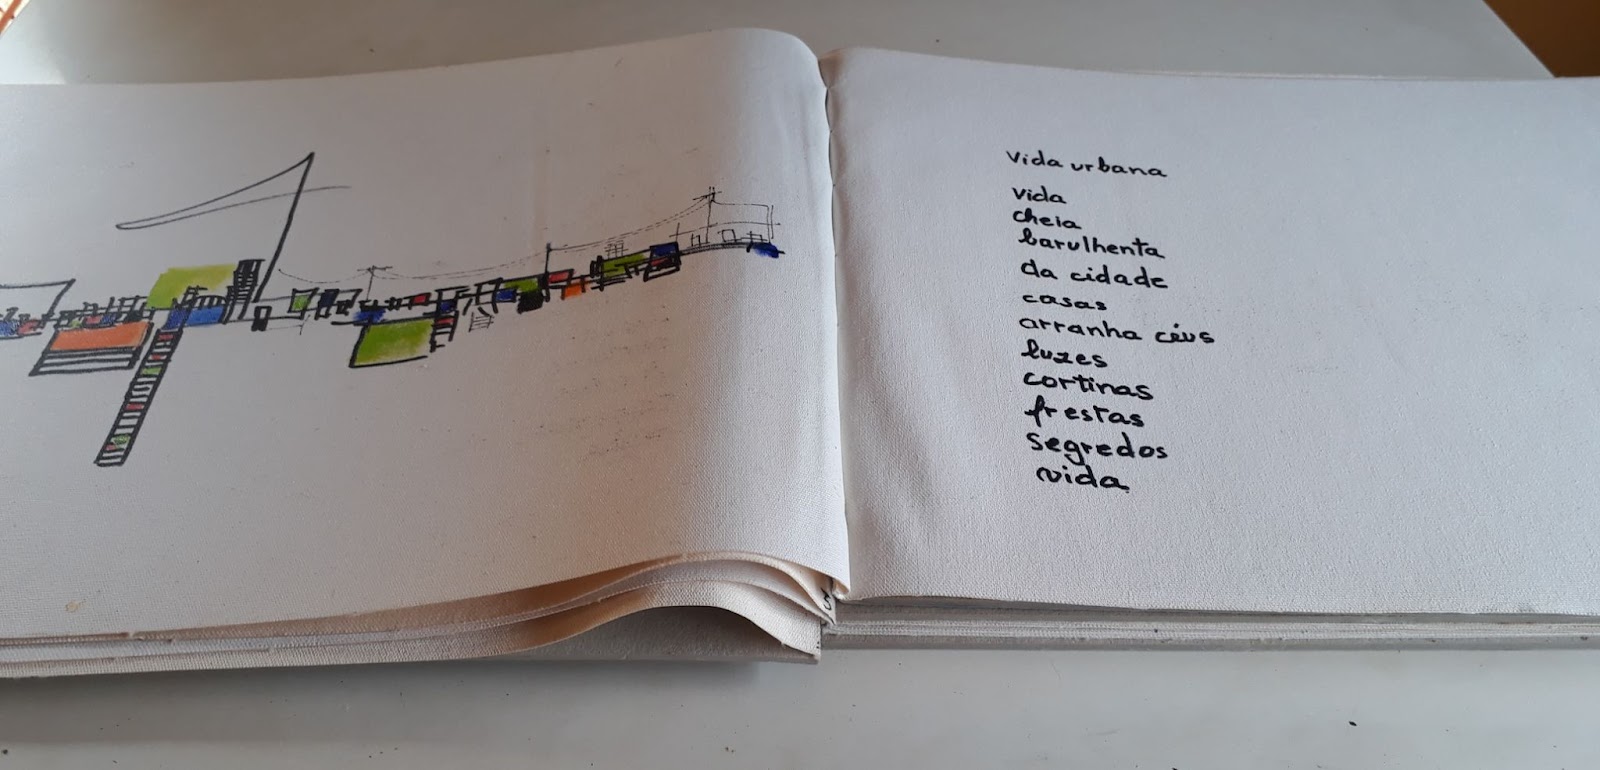 vida urbana
vida
cheia
barulhenta
da cidade
casas
arranha céus
luzes
cortinas
frestas
segredos
vida